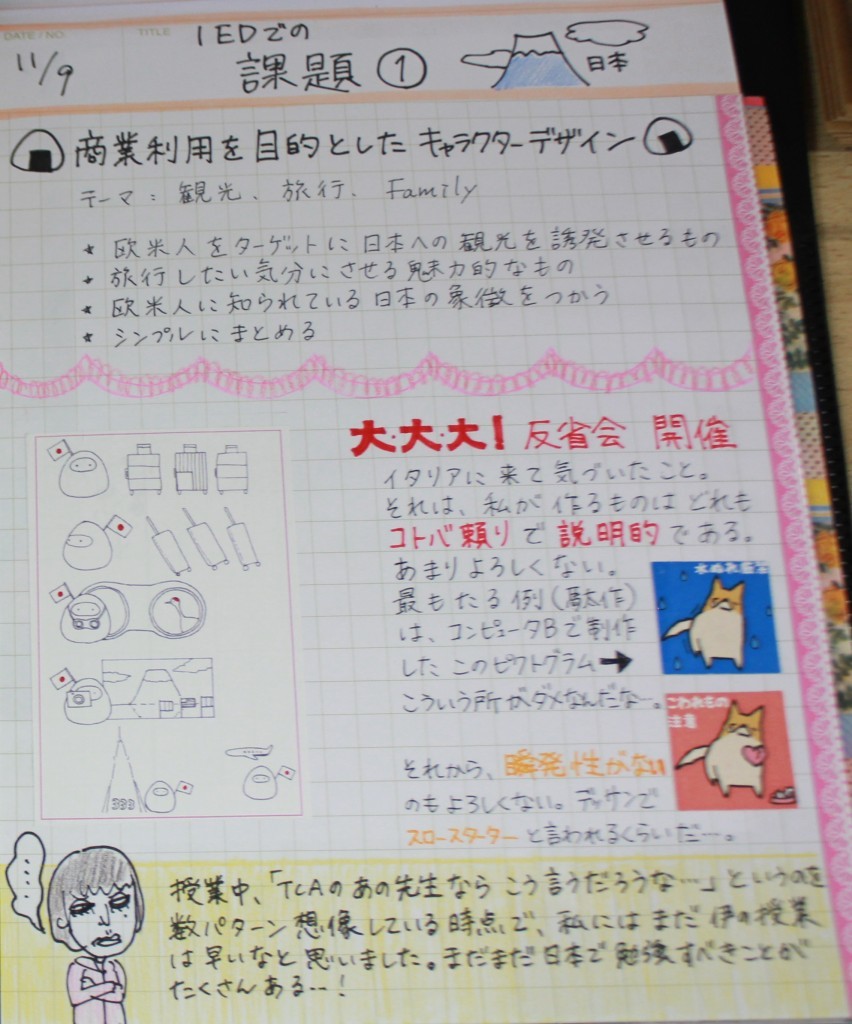 DATE / NO.
TITLE
11/9
IEDでの
課題 ①
日本
商業利用を目的としたキャラクターデザイン
テーマ : 観光、旅行、Family
★ 欧米人をターゲットに日本への観光を誘発させるもの
★ 旅行したい気分にさせる魅力的なもの
★ 欧米人に知られている日本の象徴をつかう
★ シンプルにまとめる
大・大・大！反省会 開催
イタリアに来て気づいたこと。
それは、私が作るものはどれも
コトバ頼りで説明的である。
あまりよろしくない。
最もたる例(駄作)
は、コンピュータBで制作
したこのピクトグラム→
こういう所がダメなんだな…。
水ぬれ
こわれもの
注意
それから、瞬発性がない
のもよろしくない。デッサンで
スロースターターと言われるくらいだ…。
授業中、「TCAのあの先生ならこう言うだろうな…」というのを
数パターン想像している時点で、私にはまだ伊の授業
は早いなと思いました。まだまだ日本で勉強すべきことが
たくさんある…！